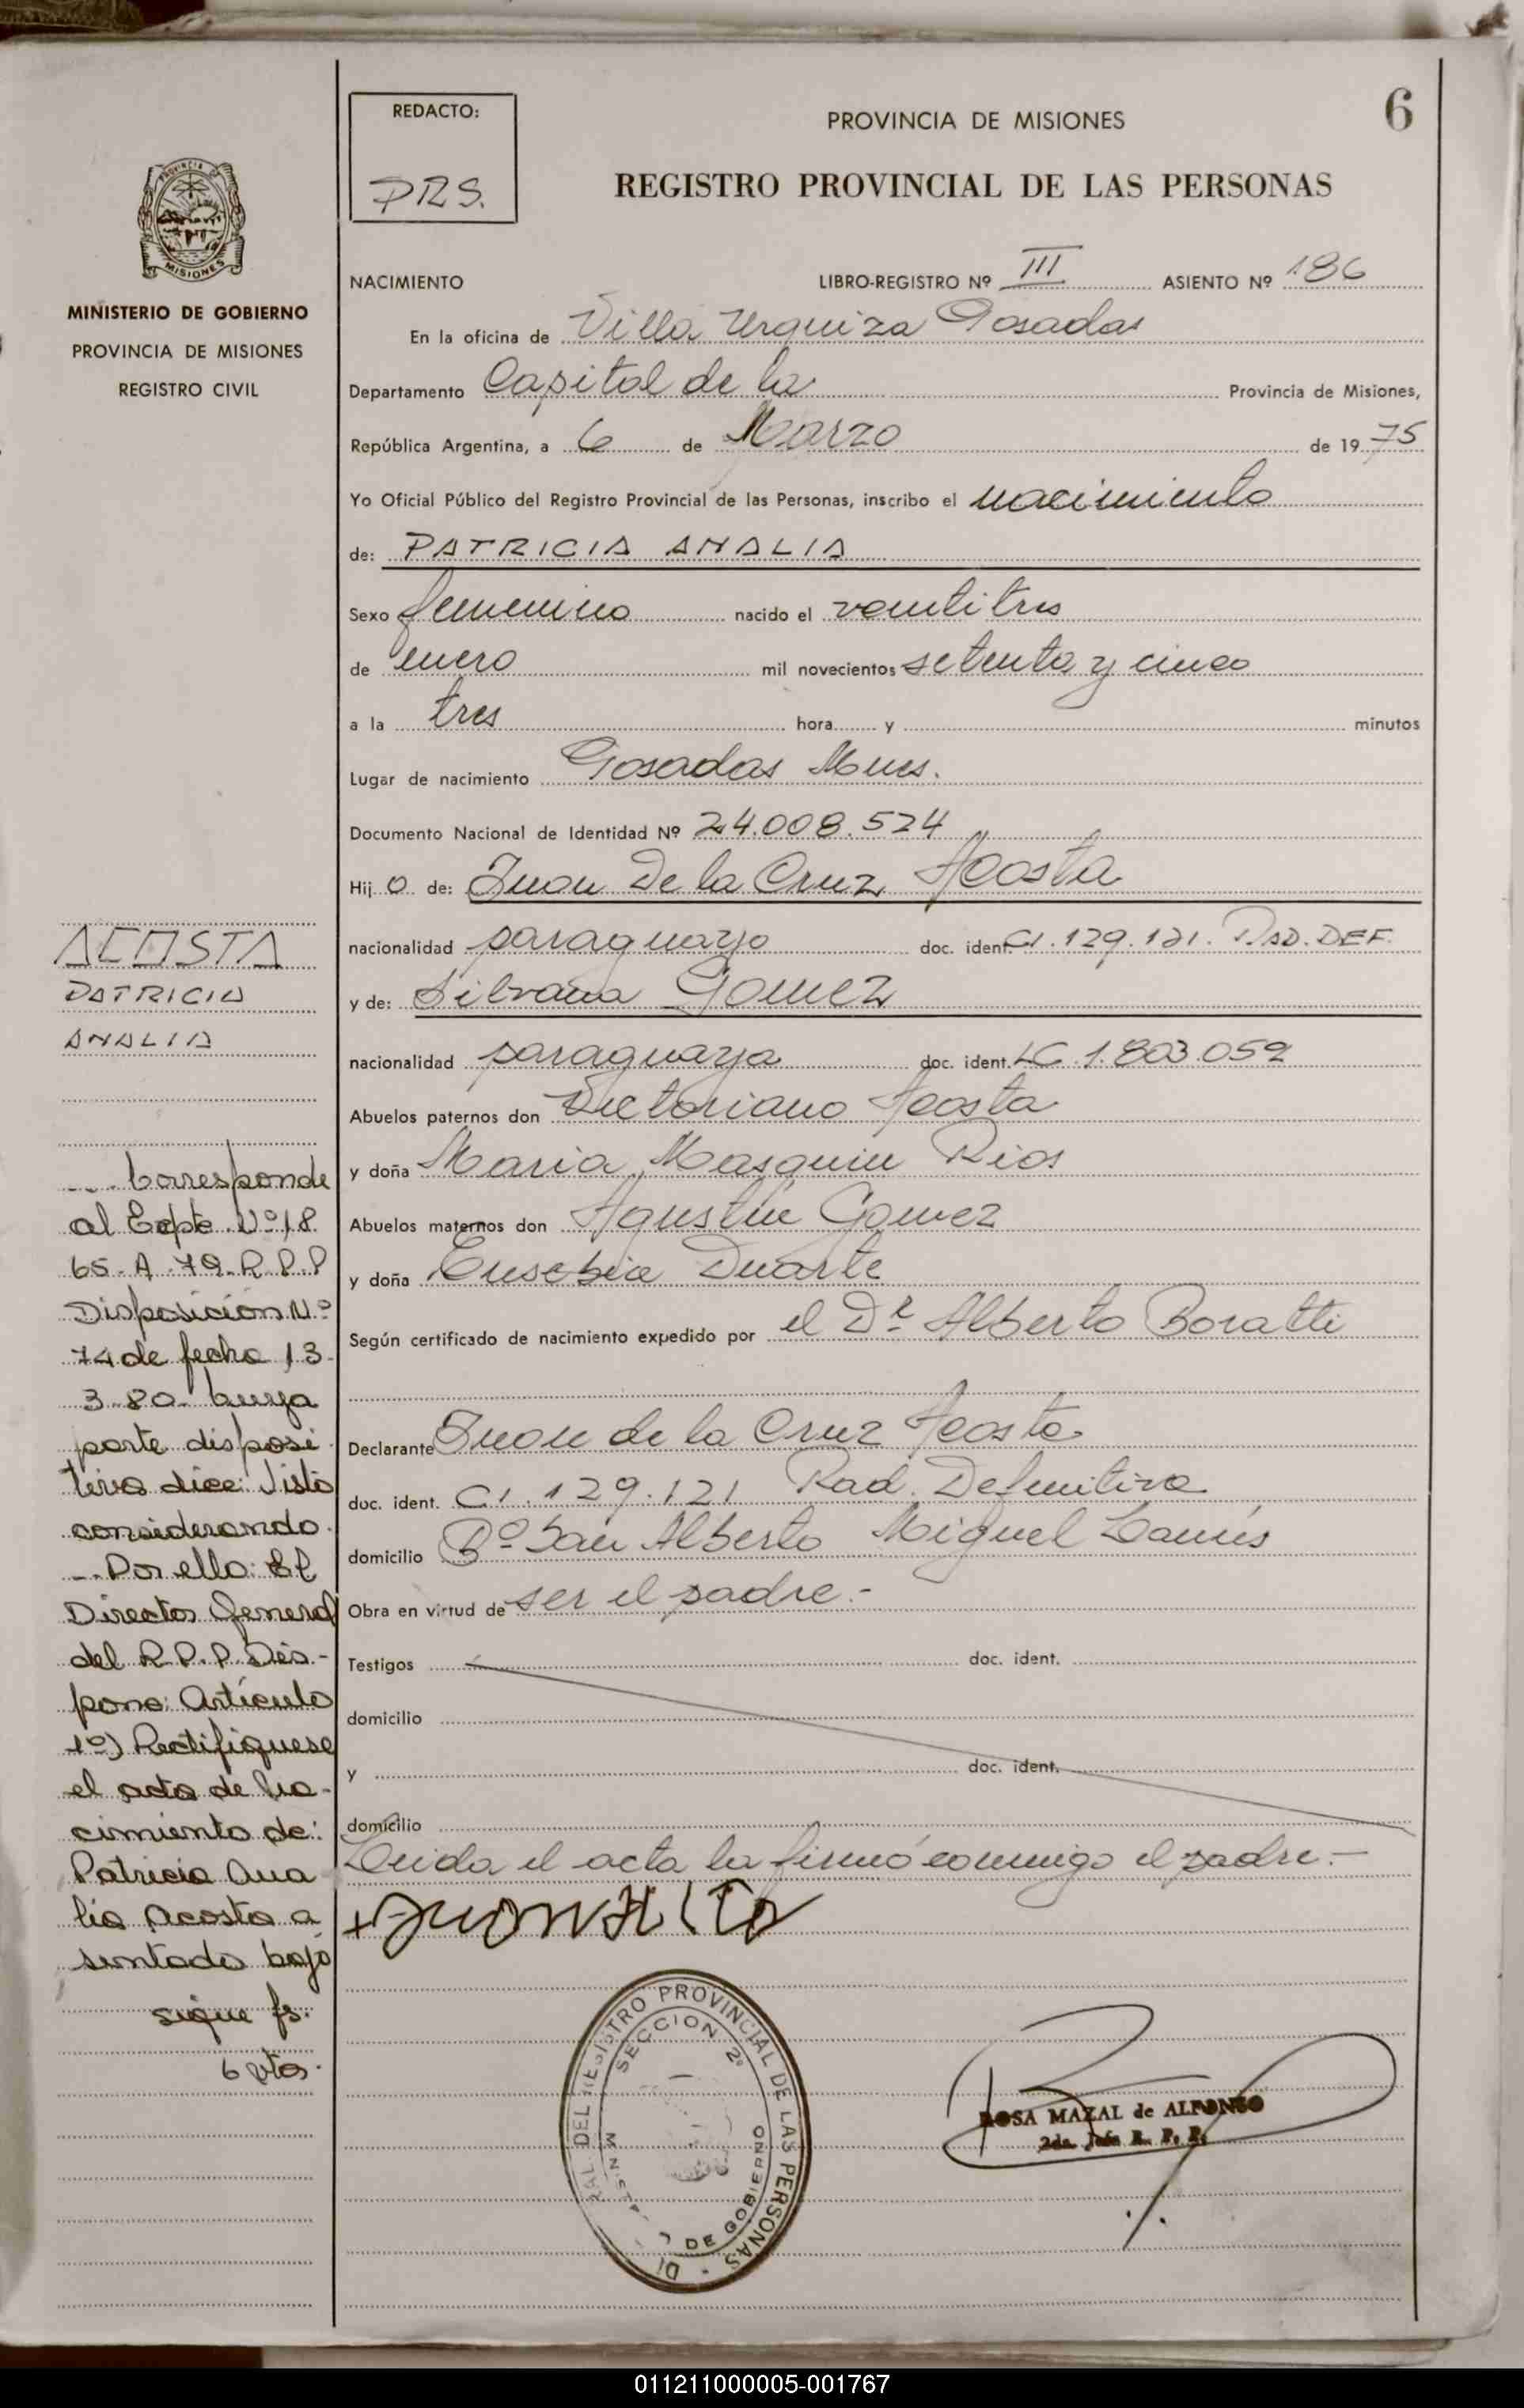 6
REDACTO:
P.R.S.
PROVINCIA DE MISIONES
REGISTRO PROVINCIAL DE LAS PERSONAS
PROVINCIA
MISIONES
MINISTERIO DE GOBIERNO
PROVINCIA DE MISIONES
REGISTRO CIVIL
NACIMIENTO LIBRO-REGISTRO Nº III ASIENTO Nº 186
En la oficina de Villa Urquiza Posadas
Departamento Capital de la Provincia de Misiones,
República Argentina, a 6 de Marzo de 1975
Yo Oficial Público del Registro Provincial de las Personas, inscribo el nacimiento
de: PATRICIA ANALIA
Sexo femenino nacido el veintitres
de enero mil novecientos setenta y cinco
a la tres hora y minutos
Lugar de nacimiento Posadas Mnes.
Documento Nacional de Identidad Nº 24.008.524
Hijo de: Juan De la Cruz Acosta
nacionalidad paraguayo doc. ident. CI. 129.121. RAD. DEF.
y de: Silvana Gomez
nacionalidad paraguaya doc. ident. LC 1.803.052
Abuelos paternos don Victoriano Acosta
y doña Maria Rios
Abuelos maternos don Agustin Gomez
y doña Eusebia Duarte
Según certificado de nacimiento expedido por el Dr. Alberto Boratti
Declarante Juan de la Cruz Acosta
doc. ident. CI. 129.121 Rad. Definitiva
domicilio Bº San Alberto Miguel Lanús
Obra en virtud de ser el padre.-
Testigos doc. ident.
domicilio
y doc. ident.
domicilio
Leida el acta la firmó conmigo el padre.-
ACOSTA
PATRICIA
ANALIA
Corresponde
al Expte Nº 18
65-A-79-R.P.P
Disposición N.º
74 de fecha 13-
3-80- cuya
parte disposi
tiva dice: Visto
considerando
Por ello: El
Director General
del R.P.P. Dis-
pone: Artículo
1º) Rectifiquese
el acta de na-
cimiento de:
Patricia Ana
lia Acosta a
sentada bajo
sigue fs.
6 vta.
REGISTRO PROVINCIAL DE LAS PERSONAS
SECCION 2ª
DE GOBIERNO
ROSA MAZAL de ALFONSO
2da. Jefe R. P. P.
011211000005-001767